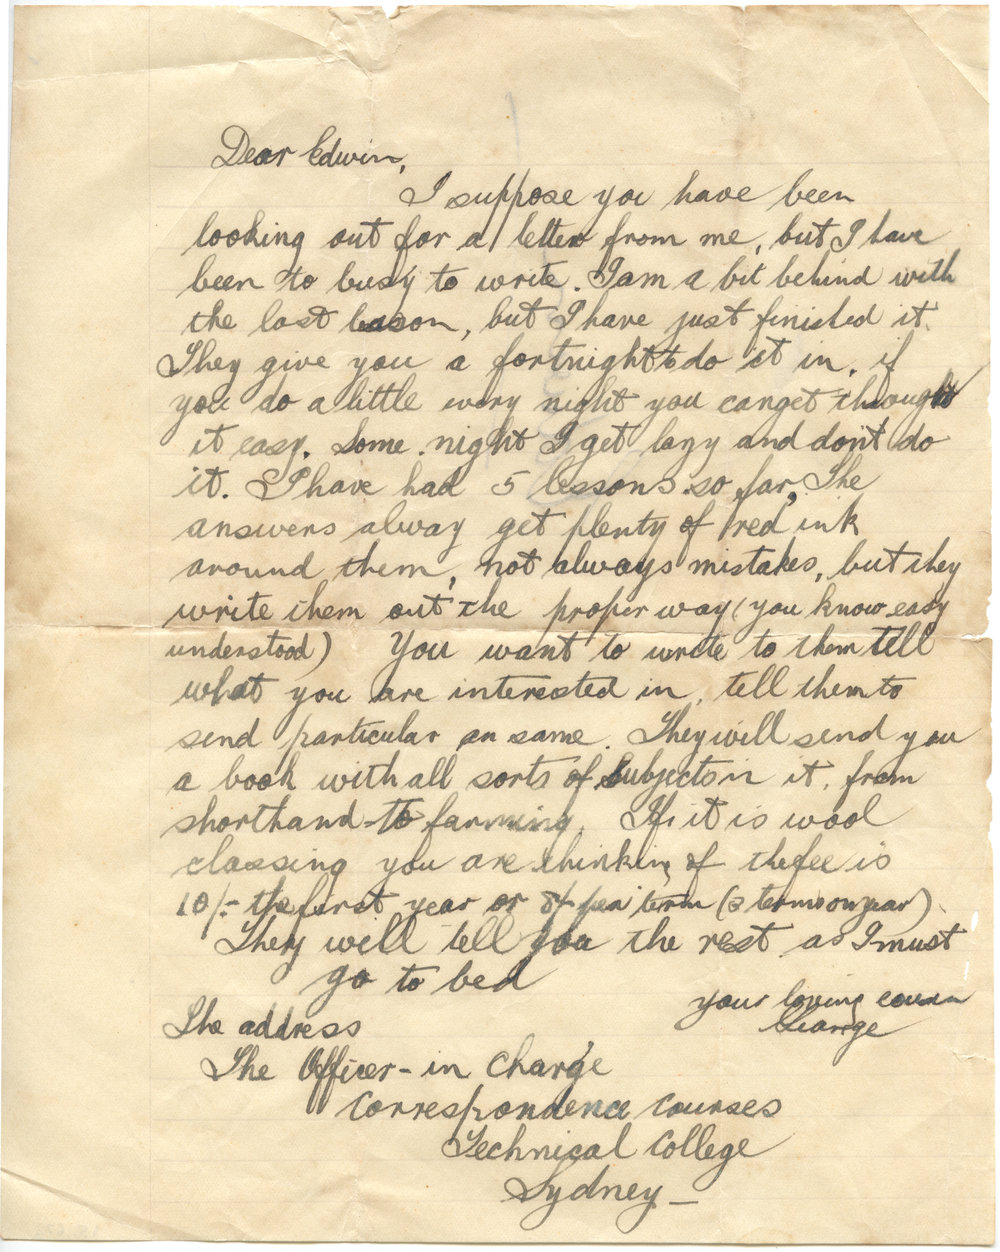 Dear Edwin,
I suppose you have been
looking out for a letter from me, but I have
been to busy to write. I am a bit behind with
the last lesson, but I have just finished it.
They give you a fortnight to do it in, if
you do a little every night you can get through
it easy. Some night I get lazy and don't do
it. I have had 5 lessons so far, The
answers alway get plenty of red ink
around them, not always mistakes, but they
write them out the proper way (you know easy
understood) You want to write to them tell
what you are interested in, tell them to
send particular on same. They will send you
a book with all sorts of subjects in it, from
shorthand to farming. If it is wool
classing you are thinking of the fee is
10/- the first year or 4/- per term (3 terms on year)
They will tell you the rest as I must
go to bed
your loving cousin
George
The address
The Officer-in Charge
Correspondence Courses
Technical College
Sydney-